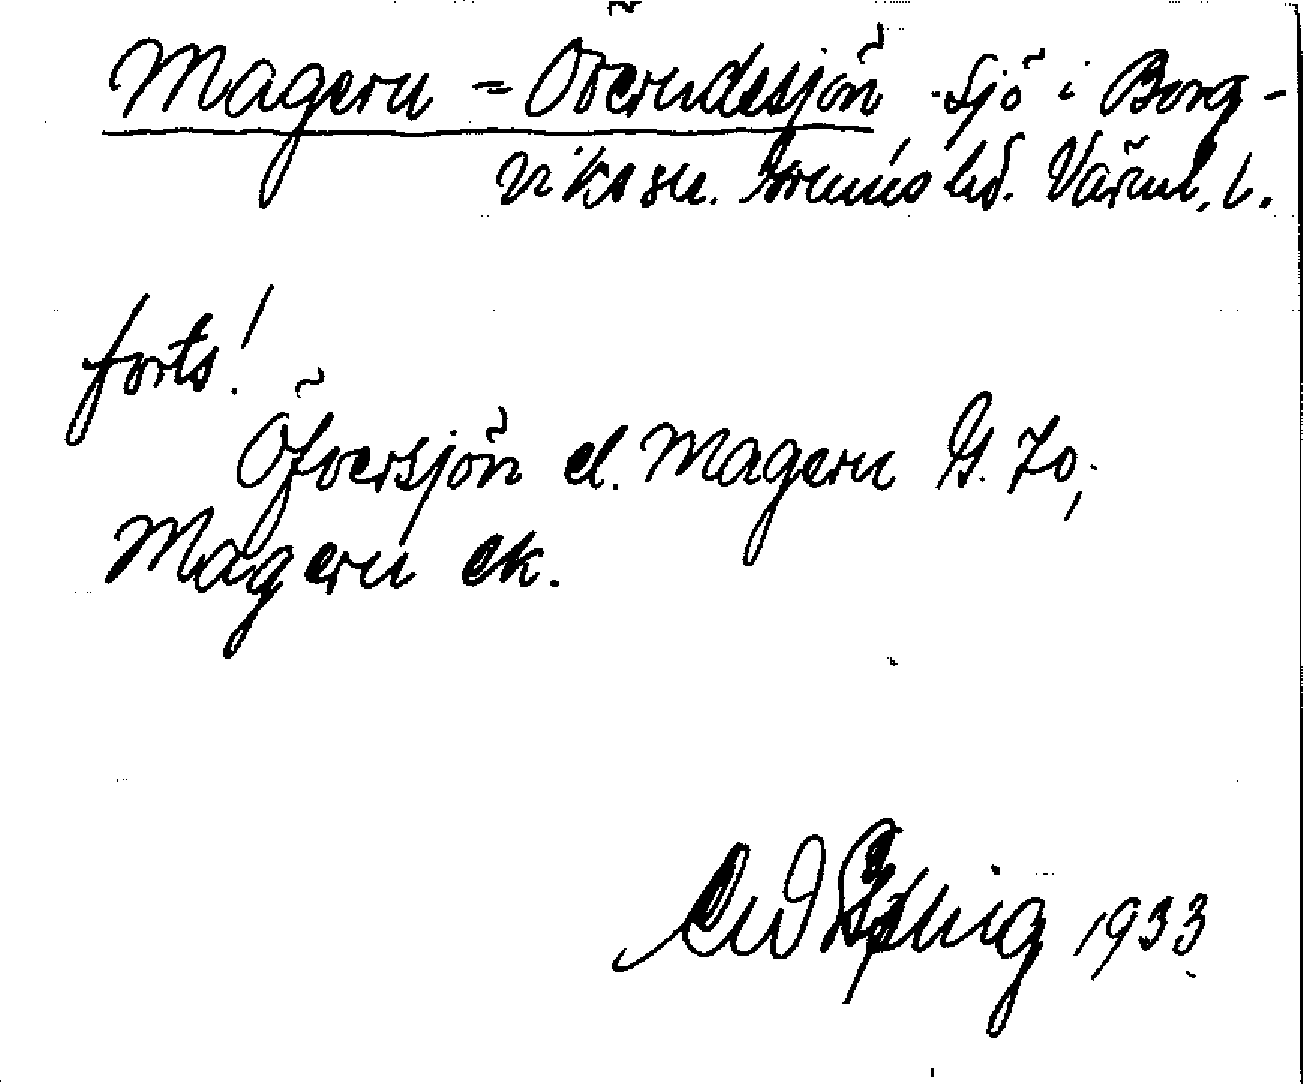 Mageru = Överudssjön Sjö i Borg-
viks sn. Grums hd. Värml. l.
forts!
Öfversjön el. Mageru G. 70;
Mageru ek.
1933